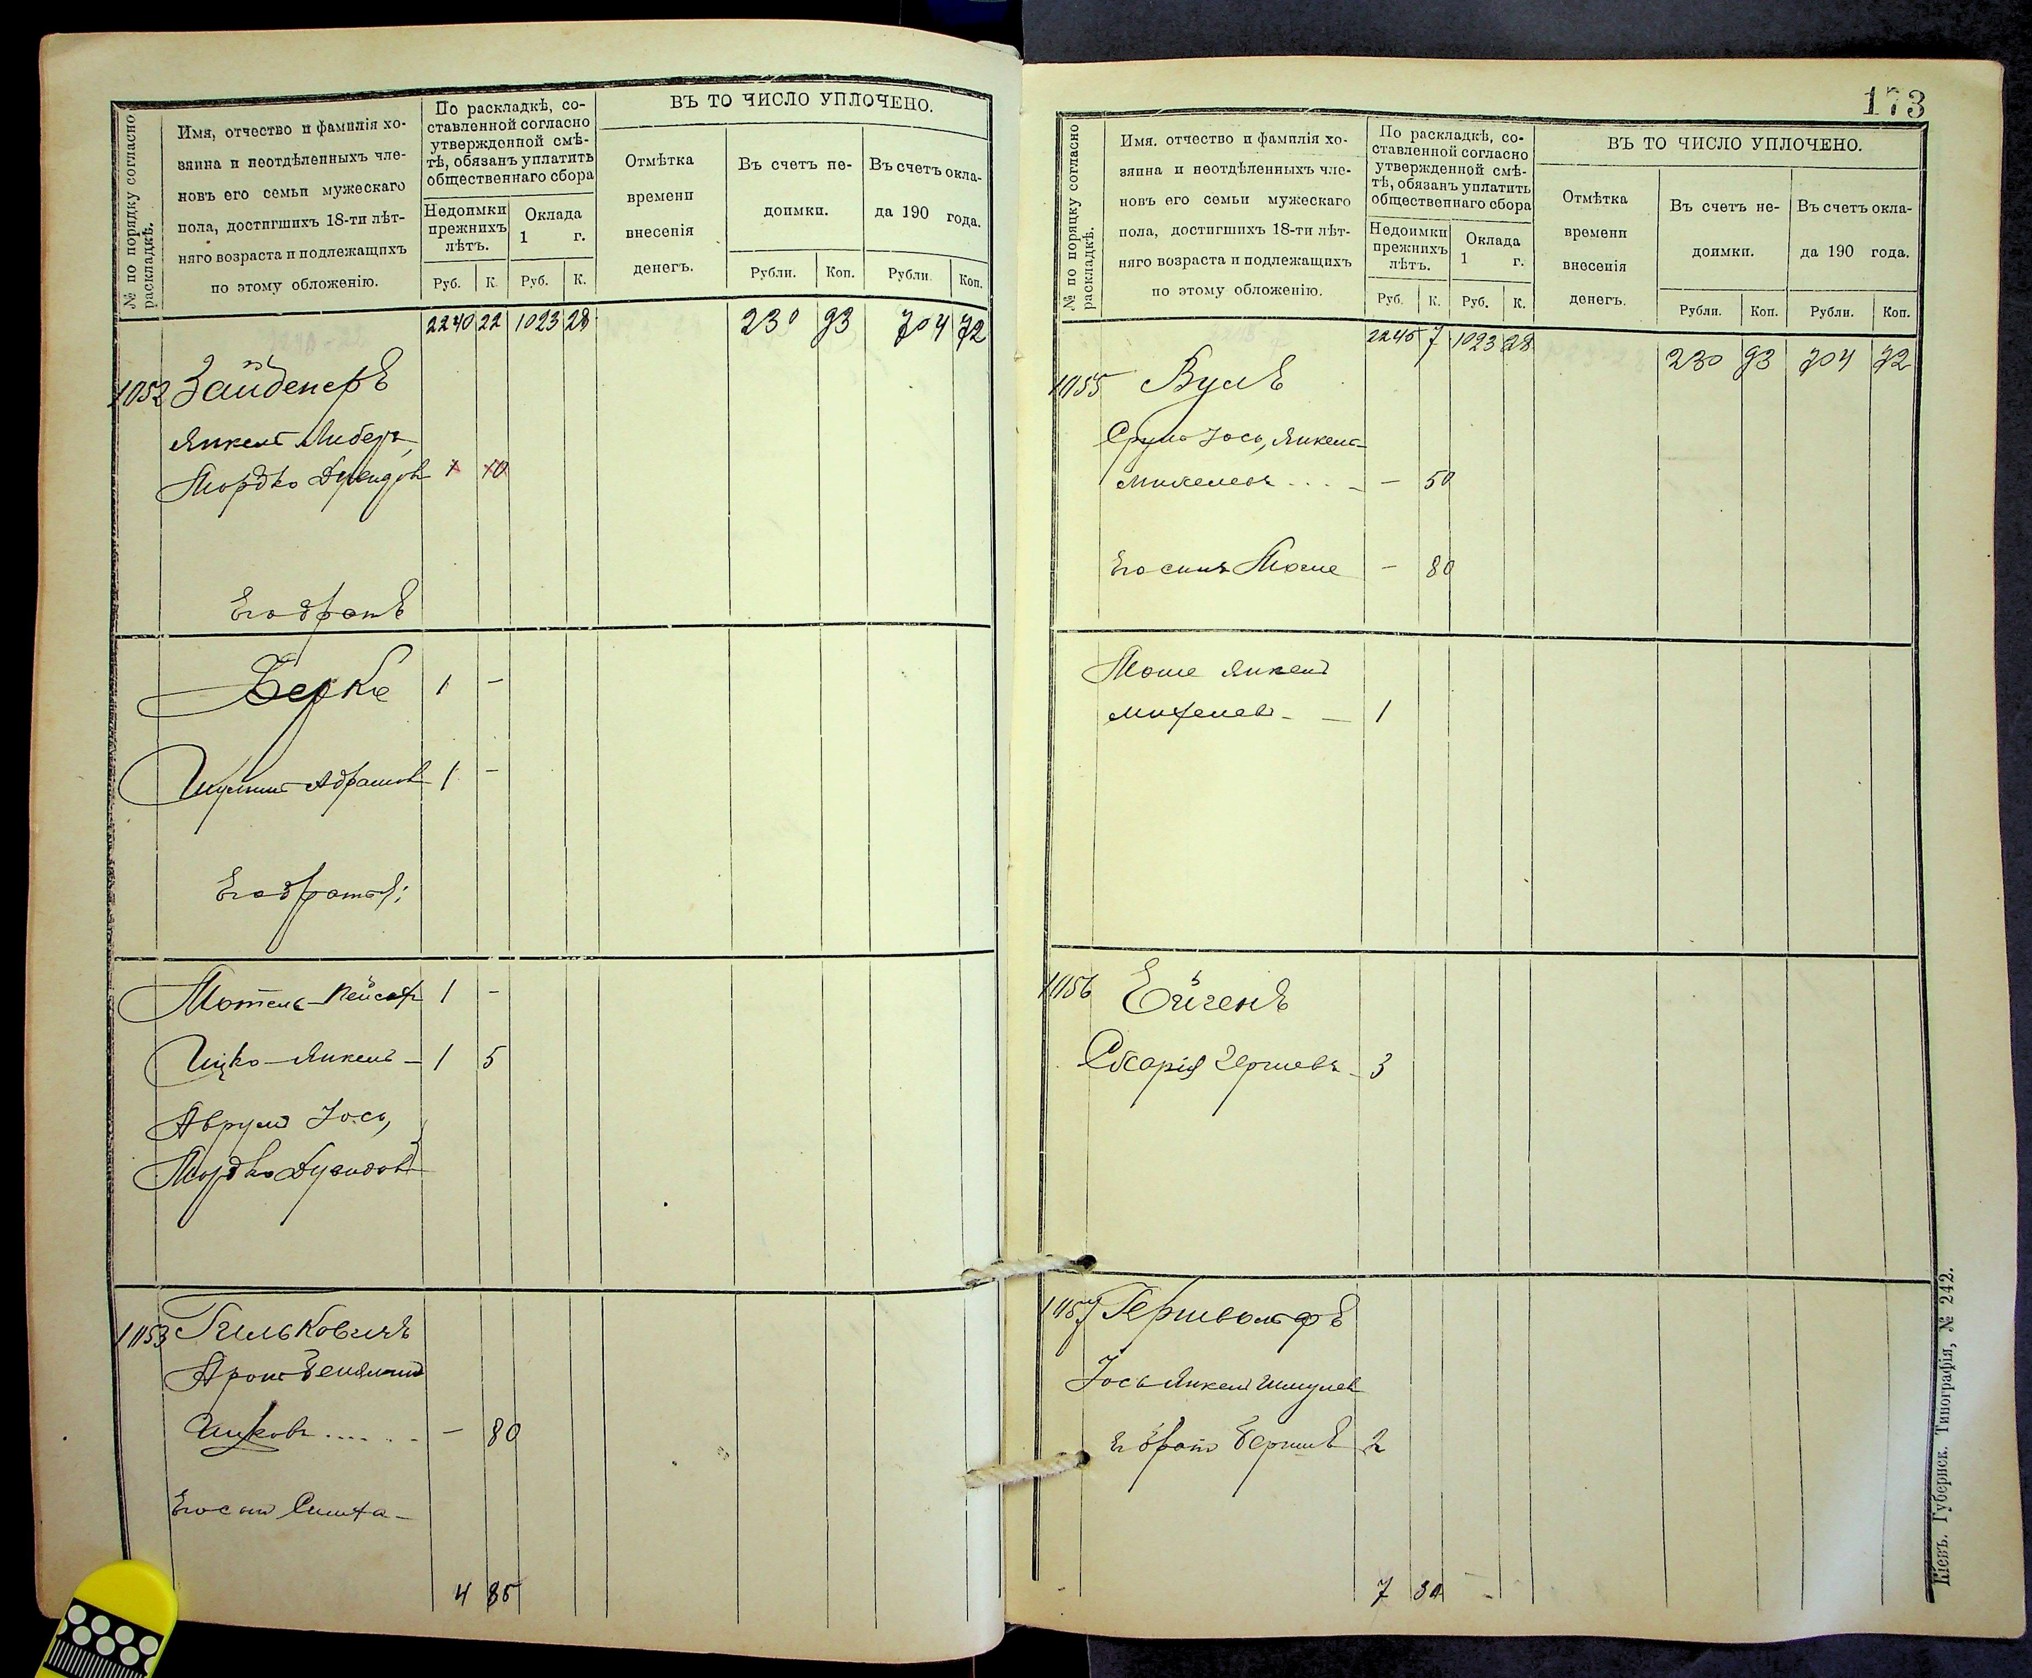 № по порядку согласно раскладкѣ.
Имя, отчество и фамилія хо-
зяина и неотдѣленныхъ чле-
новъ его семьи мужескаго
пола, достигшихъ 18-ти лѣт-
няго возраста и подлежащихъ
по этому обложенію.
По раскладкѣ, со-
ставленной согласно
утвержденной смѣ-
тѣ, обязанъ уплатить
общественнаго сбора
Недоимки прежнихъ лѣтъ.
Оклада 1 г.
Руб. К. Руб. К.
ВЪ ТО ЧИСЛО УПЛОЧЕНО.
Отмѣтка
времени
внесенія
денегъ.
Въ счетъ не-
доимки.
Въ счетъ окла-
да 190 года.
Рубли. Коп. Рубли Коп.
2240 22 1023 28 230 93 704 72
1052 Зайденеръ
Янкель Либеръ,
Мордко Дувидов 1 10
Его братъ
Берко 1 —
Шулимъ Абрамов 1 —
Его братья:
Мотель-Пейсах 1 —
Ицко-Янкель — 1 5
Аврумъ Іось,
Мордко Дувидов
1053 Гильковичъ
Аронъ Беньяминъ
Ицков ..... — 80
Его сын Симха —
4 85
173
№ по порядку согласно раскладкѣ.
Имя. отчество и фамилія хо-
зяина и неотдѣленныхъ чле-
новъ его семьи мужескаго
пола, достигшихъ 18-ти лѣт-
няго возраста и подлежащихъ
по этому обложенію.
По раскладкѣ, со-
ставленной согласно
утвержденной смѣ-
тѣ, обязанъ уплатить
общественнаго сбора
Недоимки прежнихъ лѣтъ.
Оклада 1 г.
Руб. К. Руб. К.
ВЪ ТО ЧИСЛО УПЛОЧЕНО.
Отмѣтка
времени
внесенія
денегъ.
Въ счетъ не-
доимки.
Въ счетъ окла-
да 190 года.
Рубли. Коп. Рубли. Коп.
2245 7 1023 28 230 93 704 72
1055 Вулъ
Сруль Іось, Янкель
Михелев .... — 50
Его сынъ Моше — 80
Моше Янкель
Михелев — 1
1056 Ейгенъ
Гершевъ 3
1057 Гершвольфъ
Іось Янкель Шмулев
Ег братъ Берышъ 2
7 30
Кіевъ. Губернск. Типографія, № 242.